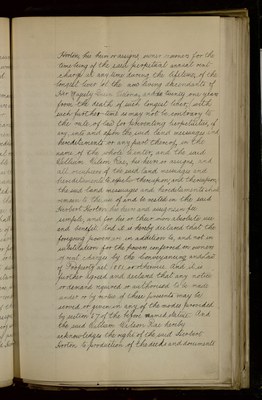 Horton, his heirs or assigns, owner or owners for the
time being of the said perpetual annual rent
charge at any time during the lifetime of the
longest liver of the now living descendants of
Her Majesty Queen Victoria and twenty one years
from the death of such longest liver, with
such further time as may not be contrary to
the rule of law for preventing perpetuities, if
any, into and upon the said land messuages and
hereditaments or any part thereof, in the
name of the whole to enter, and the said
William Wilson Kas, his heirs or assigns, and
all occupiers of the said land messuages and
hereditaments to expel therefrom, and thereupon
the said land messuages and hereditaments shall
remain to the use of and be vested in the said
Herbert Horton his heirs and assigns in fee
simple, and for his or their own absolute use
and benefit. And it is hereby declared that the
foregoing powers are in addition to, and not in
substitution for the powers conferred on owners
of rent charges by the Conveyancing and Law
of Property Act 1881 or otherwise. And it is
further agreed and declared that any notice
or demand required or authorised to be made
under or by virtue of these presents may be
served or given in any of the modes provided
by section 67 of the before named Statute. And
the said William Wilson Kas hereby
acknowledges the right of the said Herbert
Horton to production of the deeds and documents